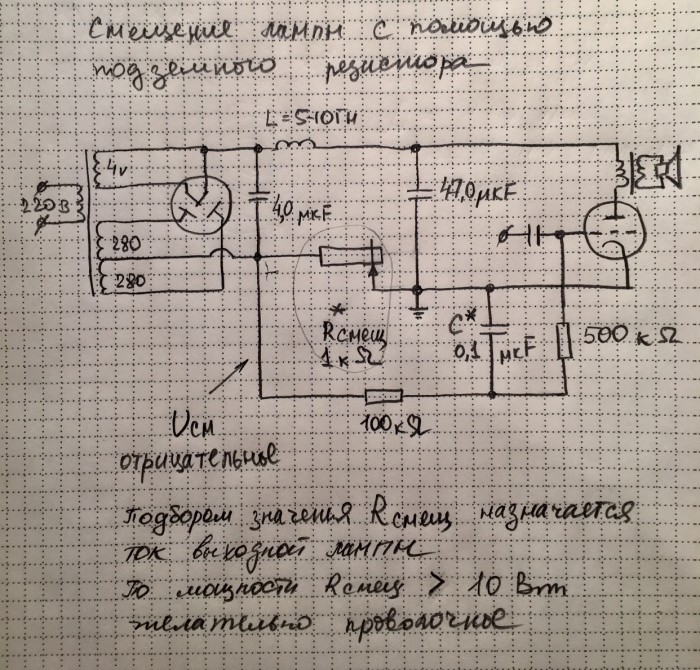 Смещение лампы с помощью
подземного резистора
L=5-10Гн
4v
220В
4,0 мкF
47,0 мкF
280
280
*
Rсмещ
1кΩ
C*
0,1 мкF
500кΩ
100кΩ
Uсм
отрицательные
Подбором значения Rсмещ назначается
ток выходной лампы
По мощности Rсмещ > 10 Вт
желательно проволочное